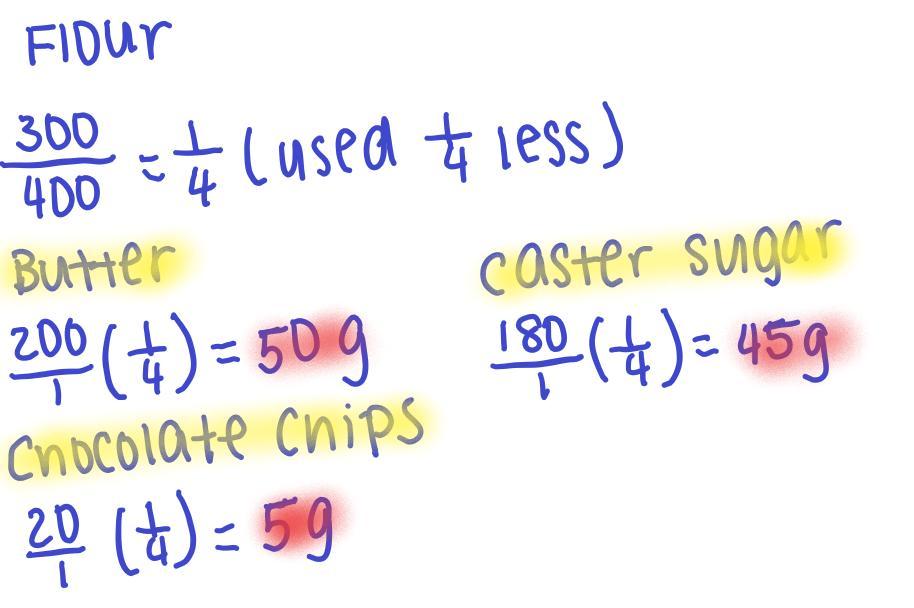 Flour
300/400 = 1/4 (used 1/4 less)
Butter
200/1 (1/4) = 50g
caster sugar
180/1 (1/4) = 45g
Chocolate chips
20/1 (1/4) = 5g